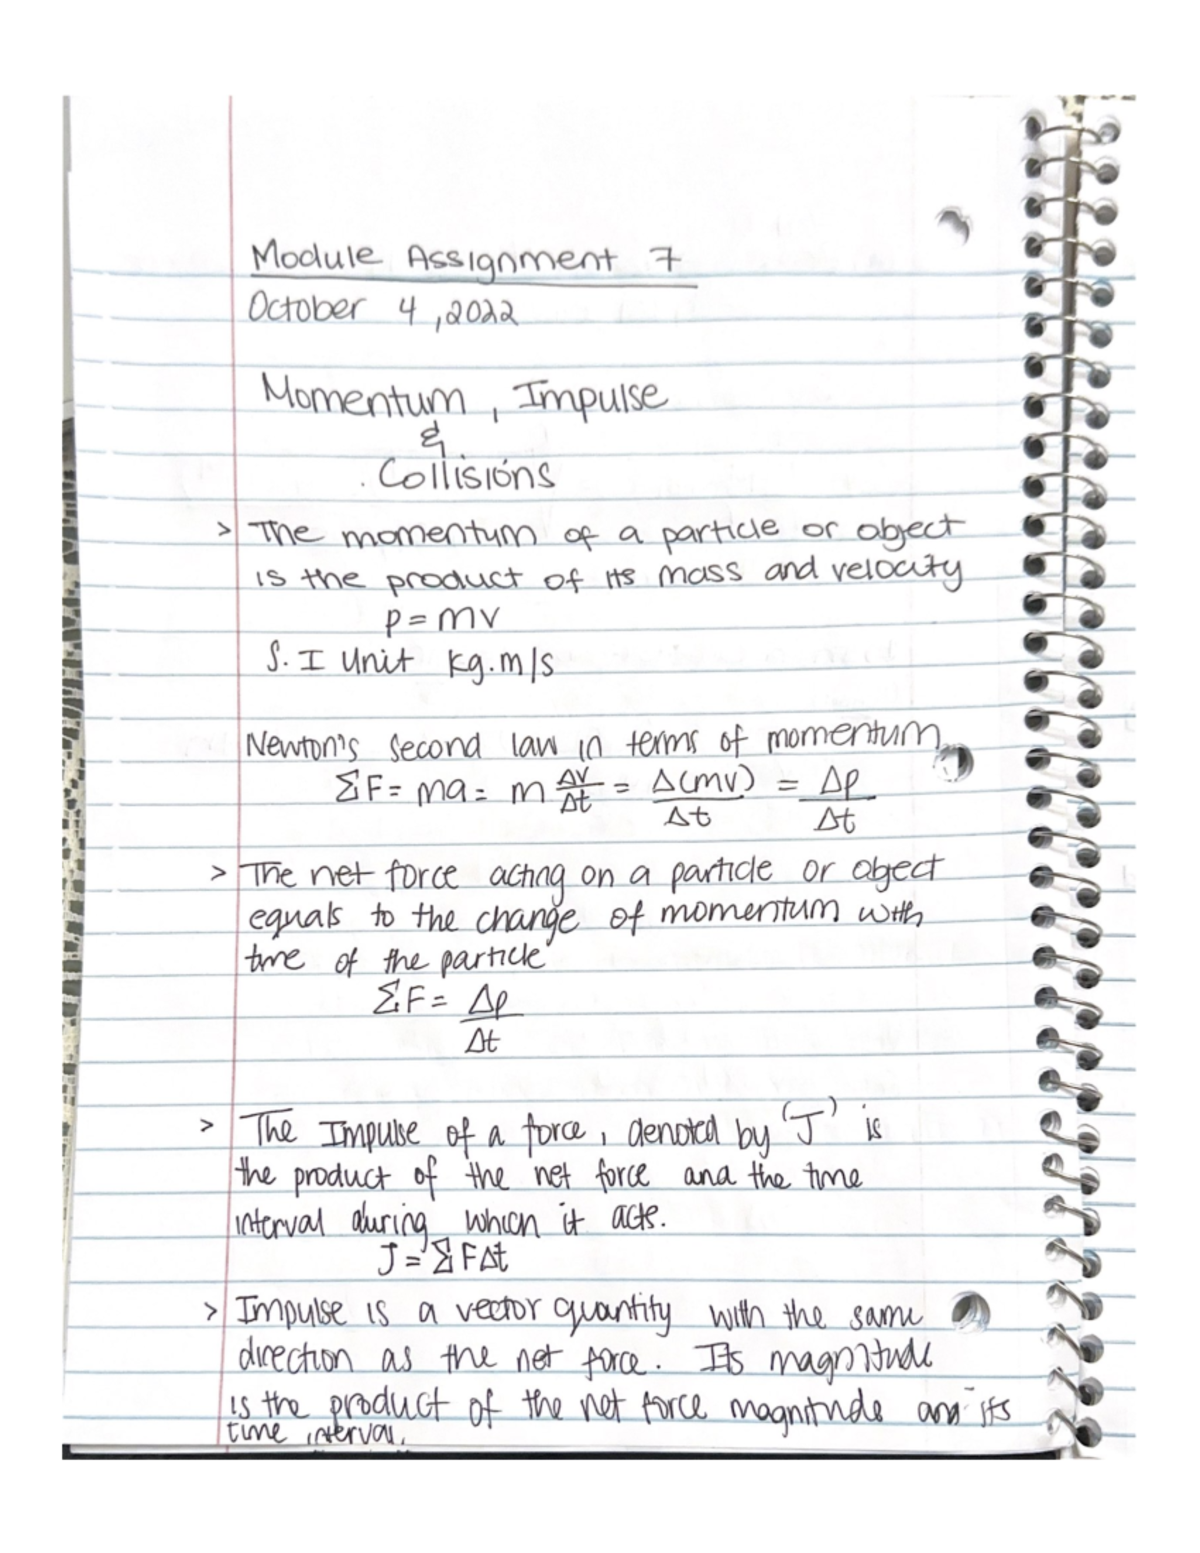 Module Assignment 7
October 4, 2022
Momentum, Impulse
&
Collisions
> The momentum of a particle or object
is the product of its mass and velocity
p = mv
S.I Unit kg.m/s
Newton's second law in terms of momentum
ΣF = ma = m Δv/Δt = Δ(mv)/Δt = Δp/Δt
> The net force acting on a particle or object
equals to the change of momentum with
time of the particle
ΣF = Δp/Δt
> The Impulse of a force, denoted by 'J' is
the product of the net force and the time
interval during which it acts.
J = ΣFΔt
> Impulse is a vector quantity with the same
direction as the net force. Its magnitude
is the product of the net force magnitude and its
time interval.